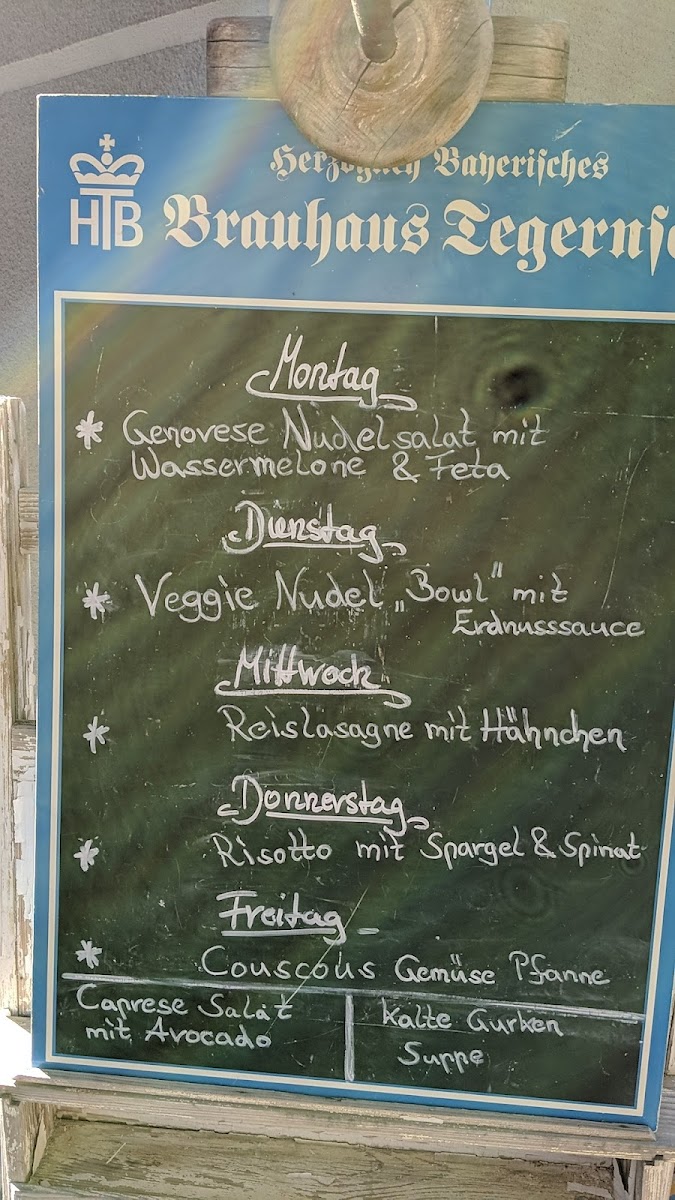 Herzoglich Bayerisches
HTB Brauhaus Tegernse
Montag
* Genovese Nudelsalat mit
Wassermelone & Feta
Dienstag
* Veggie Nudel „Bowl" mit
Erdnusssauce
Mittwoch
* Reislasagne mit Hähnchen
Donnerstag
* Risotto mit Spargel & Spinat
Freitag
* Couscous Gemüse Pfanne
Caprese Salat
mit Avocado
Kalte Gurken
Suppe